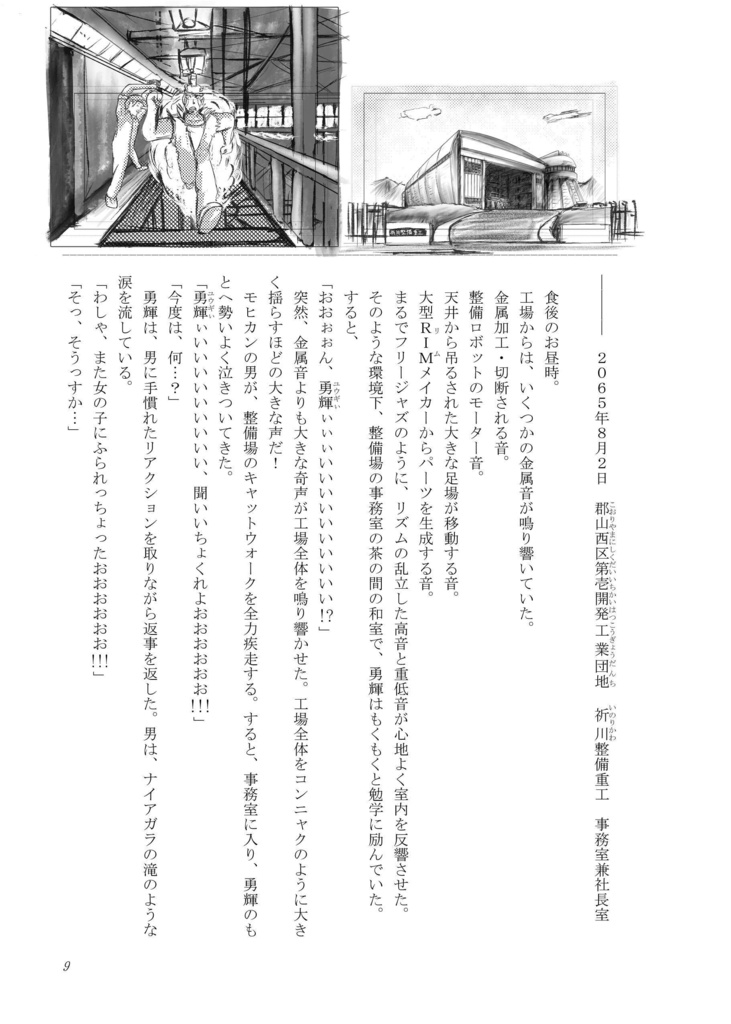 ―――――２０６５年８月２日　郡山西区第壱開発工業団地　祈川整備重工　事務室兼社長室
こおりやまにしくだいいちかいはつこうぎょうだんち
いのりかわ
食後のお昼時。
工場からは、いくつかの金属音が鳴り響いていた。
金属加工・切断される音。
整備ロボットのモーター音。
天井から吊るされた大きな足場が移動する音。
大型ＲＩＭメイカーからパーツを生成する音。
リム
まるでフリージャズのように、リズムの乱立した高音と重低音が心地よく室内を反響させた。
そのような環境下、整備場の事務室の茶の間の和室で、勇輝はもくもくと勉学に励んでいた。
すると、
「おおぉぉん、勇輝ぃぃぃいいいいいいいいいい!?」
ユウギぃ
突然、金属音よりも大きな奇声が工場全体を鳴り響かせた。工場全体をコンニャクのように大き
く揺らすほどの大きな声だ！
モヒカンの男が、整備場のキャットウォークを全力疾走する。すると、事務室に入り、勇輝のも
とへ勢いよく泣きついてきた。
「勇輝ぃいいいいいいいいい、聞いいちょくれよおおおおおお!!!」
ユウギぃ
「今度は、何…？」
勇輝は、男に手慣れたリアクションを取りながら返事を返した。男は、ナイアガラの滝のような
涙を流している。
「わしゃ、また女の子にふられっちょったおおおおおお!!!」
「そっ、そうっすか…」
9